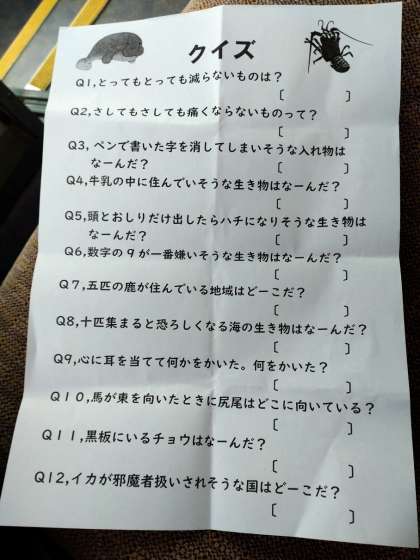 クイズ
Q1,とってもとっても減らないものは？
[ ]
Q2,さしてもさしても痛くならないものって？
[ ]
Q3,ペンで書いた字を消してしまいそうな入れ物は
なーんだ？ [ ]
Q4,牛乳の中に住んでいそうな生き物はなーんだ？
[ ]
Q5,頭とおしりだけ出したらハチになりそうな生き物は
なーんだ？ [ ]
Q6,数字の9が一番嫌いそうな生き物はなーんだ？
[ ]
Q7,五匹の鹿が住んでいる地域はどーこだ？
[ ]
Q8,十匹集まると恐ろしくなる海の生き物はなーんだ？
[ ]
Q9,心に耳を当てて何かをかいた。何をかいた？
[ ]
Q10,馬が東を向いたときに尻尾はどこに向いている？
[ ]
Q11,黒板にいるチョウはなーんだ？
[ ]
Q12,イカが邪魔者扱いされそうな国はどーこだ？
[ ]